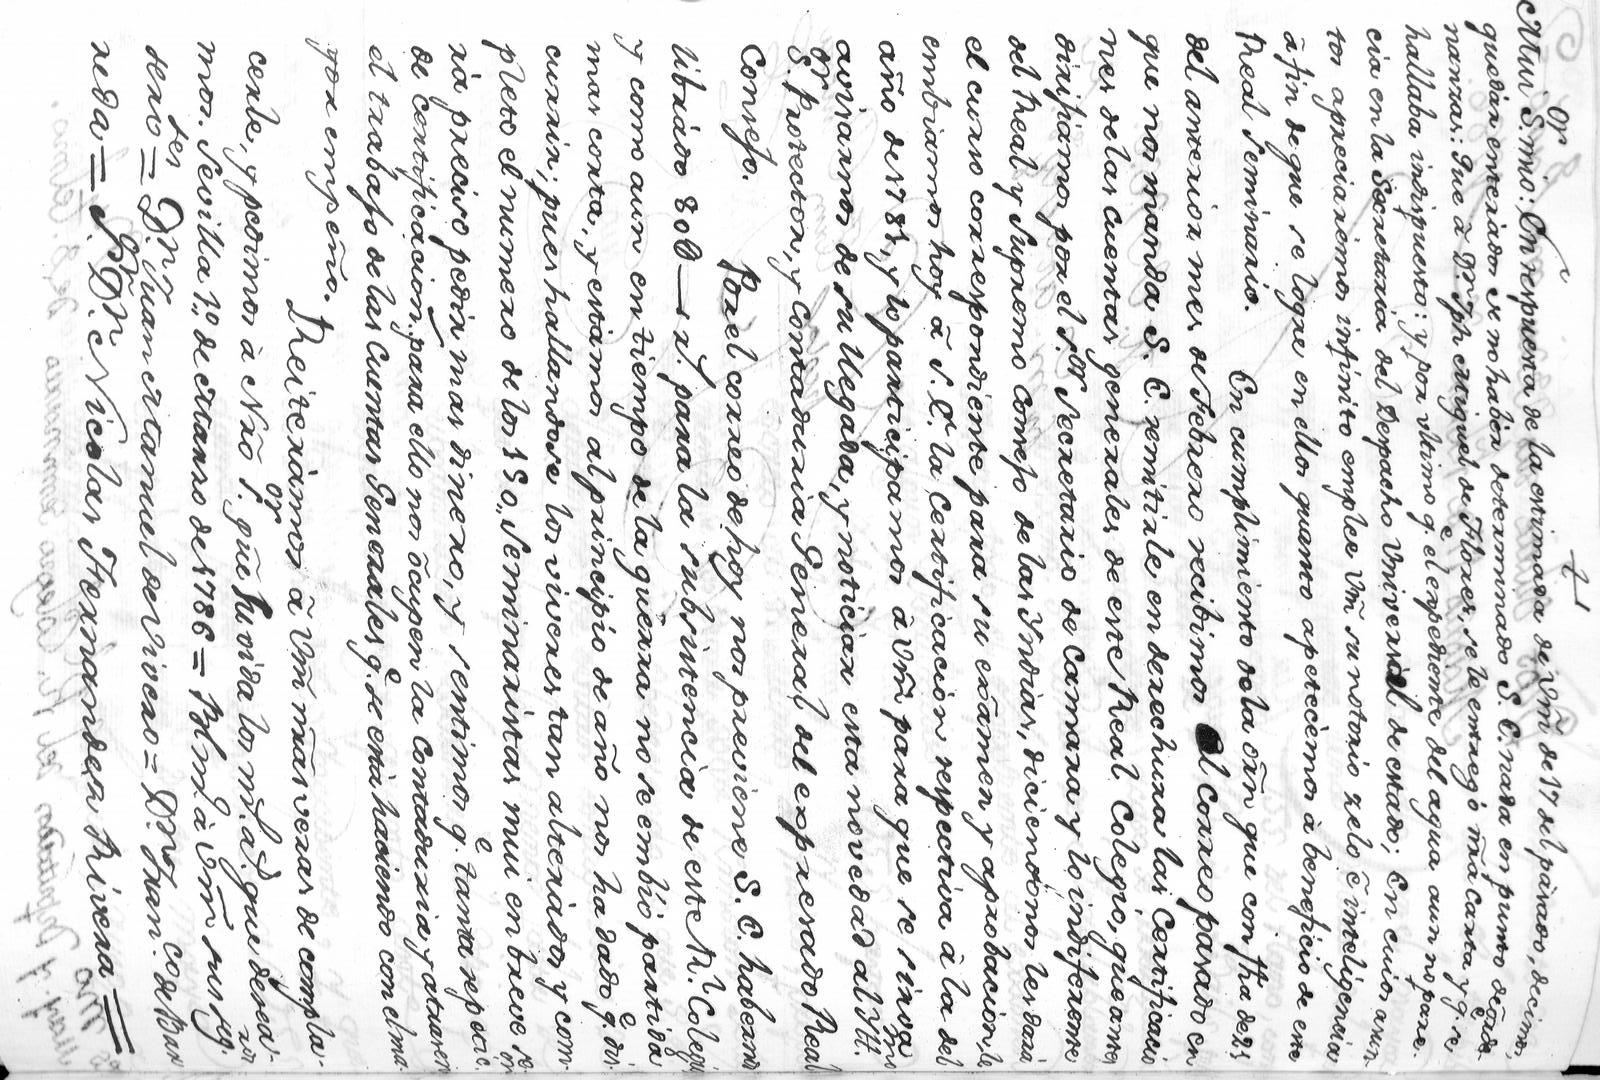 Mui S.or mio: En respuesta de la estimada de Vm̃ de 17 del pasado, decimos,
quedàr enterados en no habèr determinado S. E. nada en punto de òrde-
nanzas: Que à D.n Jph Miguel de Flores, se le entregò nr̃a carta y q.e se
hallaba indispuesto: y por ultimo q.e el expediente del agua aun no pare-
cia en la Secretaria del Despacho Universàl de estado; En cuios asun-
tos apreciarèmos infinito emplee Vm̃ su notorio zelo è inteligencia
à fin de que se logre en ellos quanto apetecèmos à beneficio de este
Real Seminario. En cumplimiento de la orñ que con fha de 21
del anterior mes de Febrero recibimos el Correo pasado en
que nos manda S. E. remitirle en derechura las Certificacio
nes de las cuentas generales de este Real Colegio, que antes
dirijiamos por el S.or Secretario de Camara y lo indiferente
del Real y Supremo Consejo de las Yndias, diciendonos les darà
el curso correspondiente para su exâmen y aprobacion, le
embiamos hoy à S. E. la Certificacion respectiva à la del
año de 1785, y lo participamos à Vm̃ para que se sirva
avisarnos de su llegada, y noticiar esta novedad al Yll.mo
S.or Protector, y Contaduria General del expresado Real
Consejo. Por el correo de hoy nos previene S. E. haberse
librado 80 r.s para la subsistencia de este R. Colegio
y como aun en tiempo de la guerra no se embiò partida
mas corta, y estamos al principio de año nos ha dado q.e dis-
currir, pues hallandose los viveres tan alterados y com-
pleto el numero de los 150,, Seminaristas mui en breve se-
rà preciso pedir mas dinero, y sentimos q.e tanta repeticion
de certificacion.s para ello nos òcupen la contaduria y atrasen
el trabajo de las Cuentas Generales q.e se està haciendo con el ma-
yor empeño. Reiteràmos à Vm̃ nr̃as veras de compla-
cerle, y pedimos à Nr̃o S.or gũe su vida los m.s a.s que desea-
mos. Sevilla 1.º de Marzo de 1786 = Blm̃ à Vm̃ sus seg.ros
ser.res = D.n Juan Manuel de Vivero = D.n Fran.co de Bar
reda = S.or D.n Nicolas Fernandez Rivera =